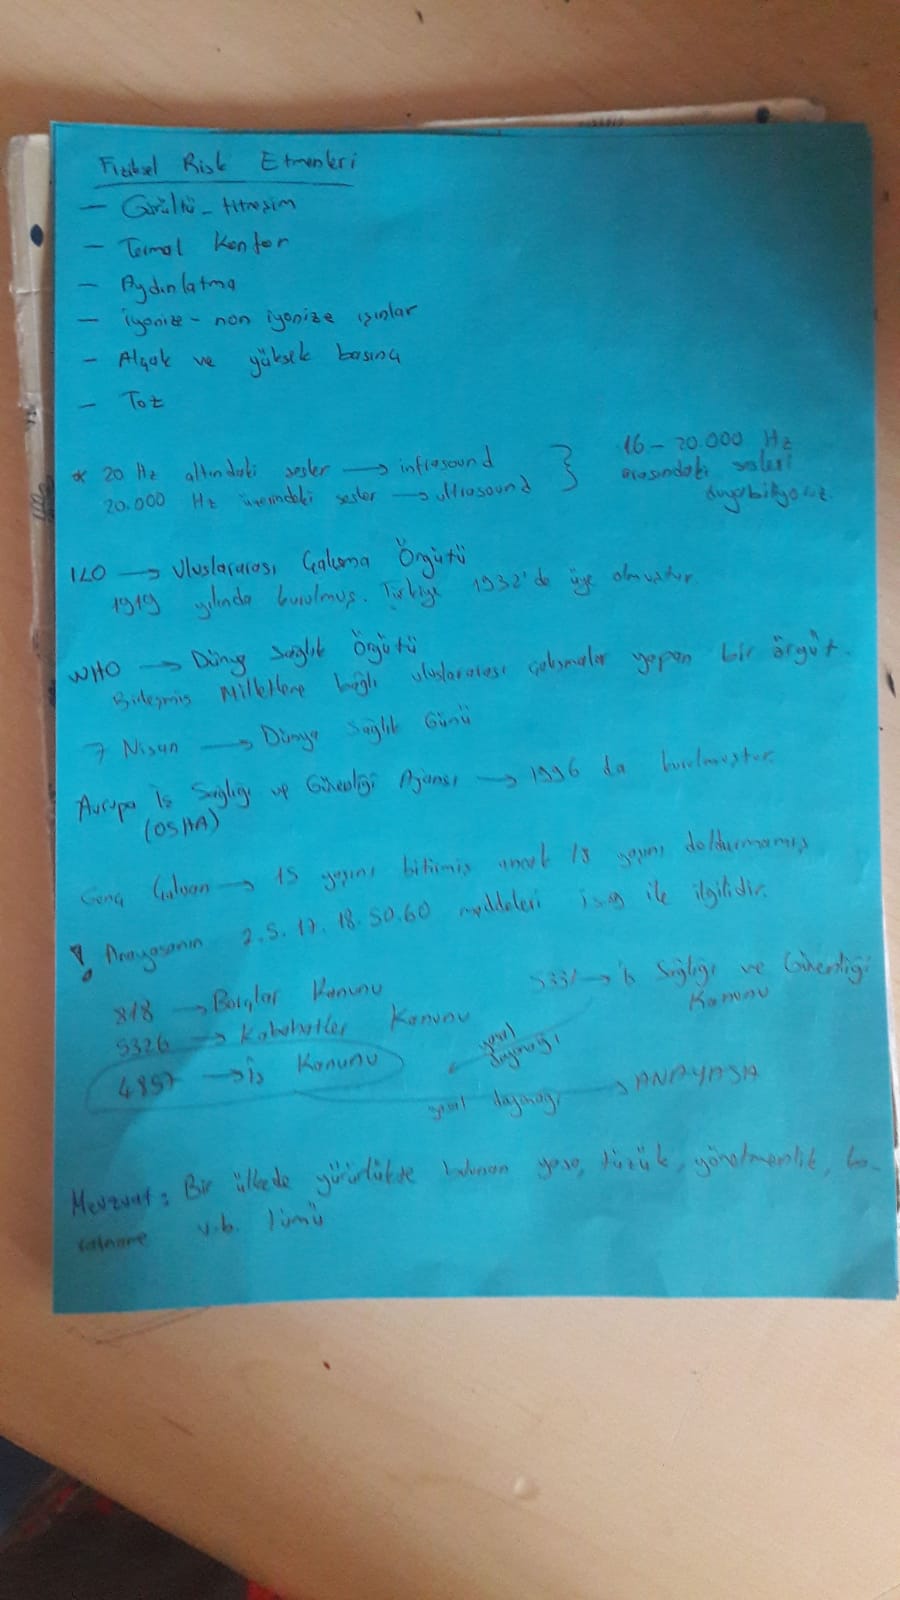 Fiziksel Risk Etmenleri
— Gürültü - titreşim
— Termal Konfor
— Aydınlatma
— iyonize - non iyonize ışınlar
— Alçak ve yüksek basınç
— Toz
* 20 Hz altındaki sesler → infrasound
20.000 Hz üzerindeki sesler → ultrasound
} 16 - 20.000 Hz
arasındaki sesleri
duyabiliyoruz.
ILO → Uluslararası Çalışma Örgütü
1919 yılında kurulmuş. Türkiye 1932'de üye olmuştur.
WHO → Dünya Sağlık Örgütü
Birleşmiş Milletlere bağlı uluslararası çalışmalar yapan bir örgüt.
7 Nisan → Dünya Sağlık Günü
Avrupa İş Sağlığı ve Güvenliği Ajansı → 1996 da kurulmuştur.
(OSHA)
Genç Çalışan → 15 yaşını bitirmiş ancak 18 yaşını doldurmamış
! Anayasanın 2. 5. 17. 18. 50. 60 maddeleri isg ile ilgilidir.
818 → Borçlar Kanunu
5331 → İş Sağlığı ve Güvenliği
Kanunu
5326 → Kabahatler Kanunu
yasal
dayanağı
4857 → İş Kanunu
yasal dayanağı → ANAYASA
Mevzuat: Bir ülkede yürürlükte bulunan yasa, tüzük, yönetmenlik, ka-
rarname v.b. tümü